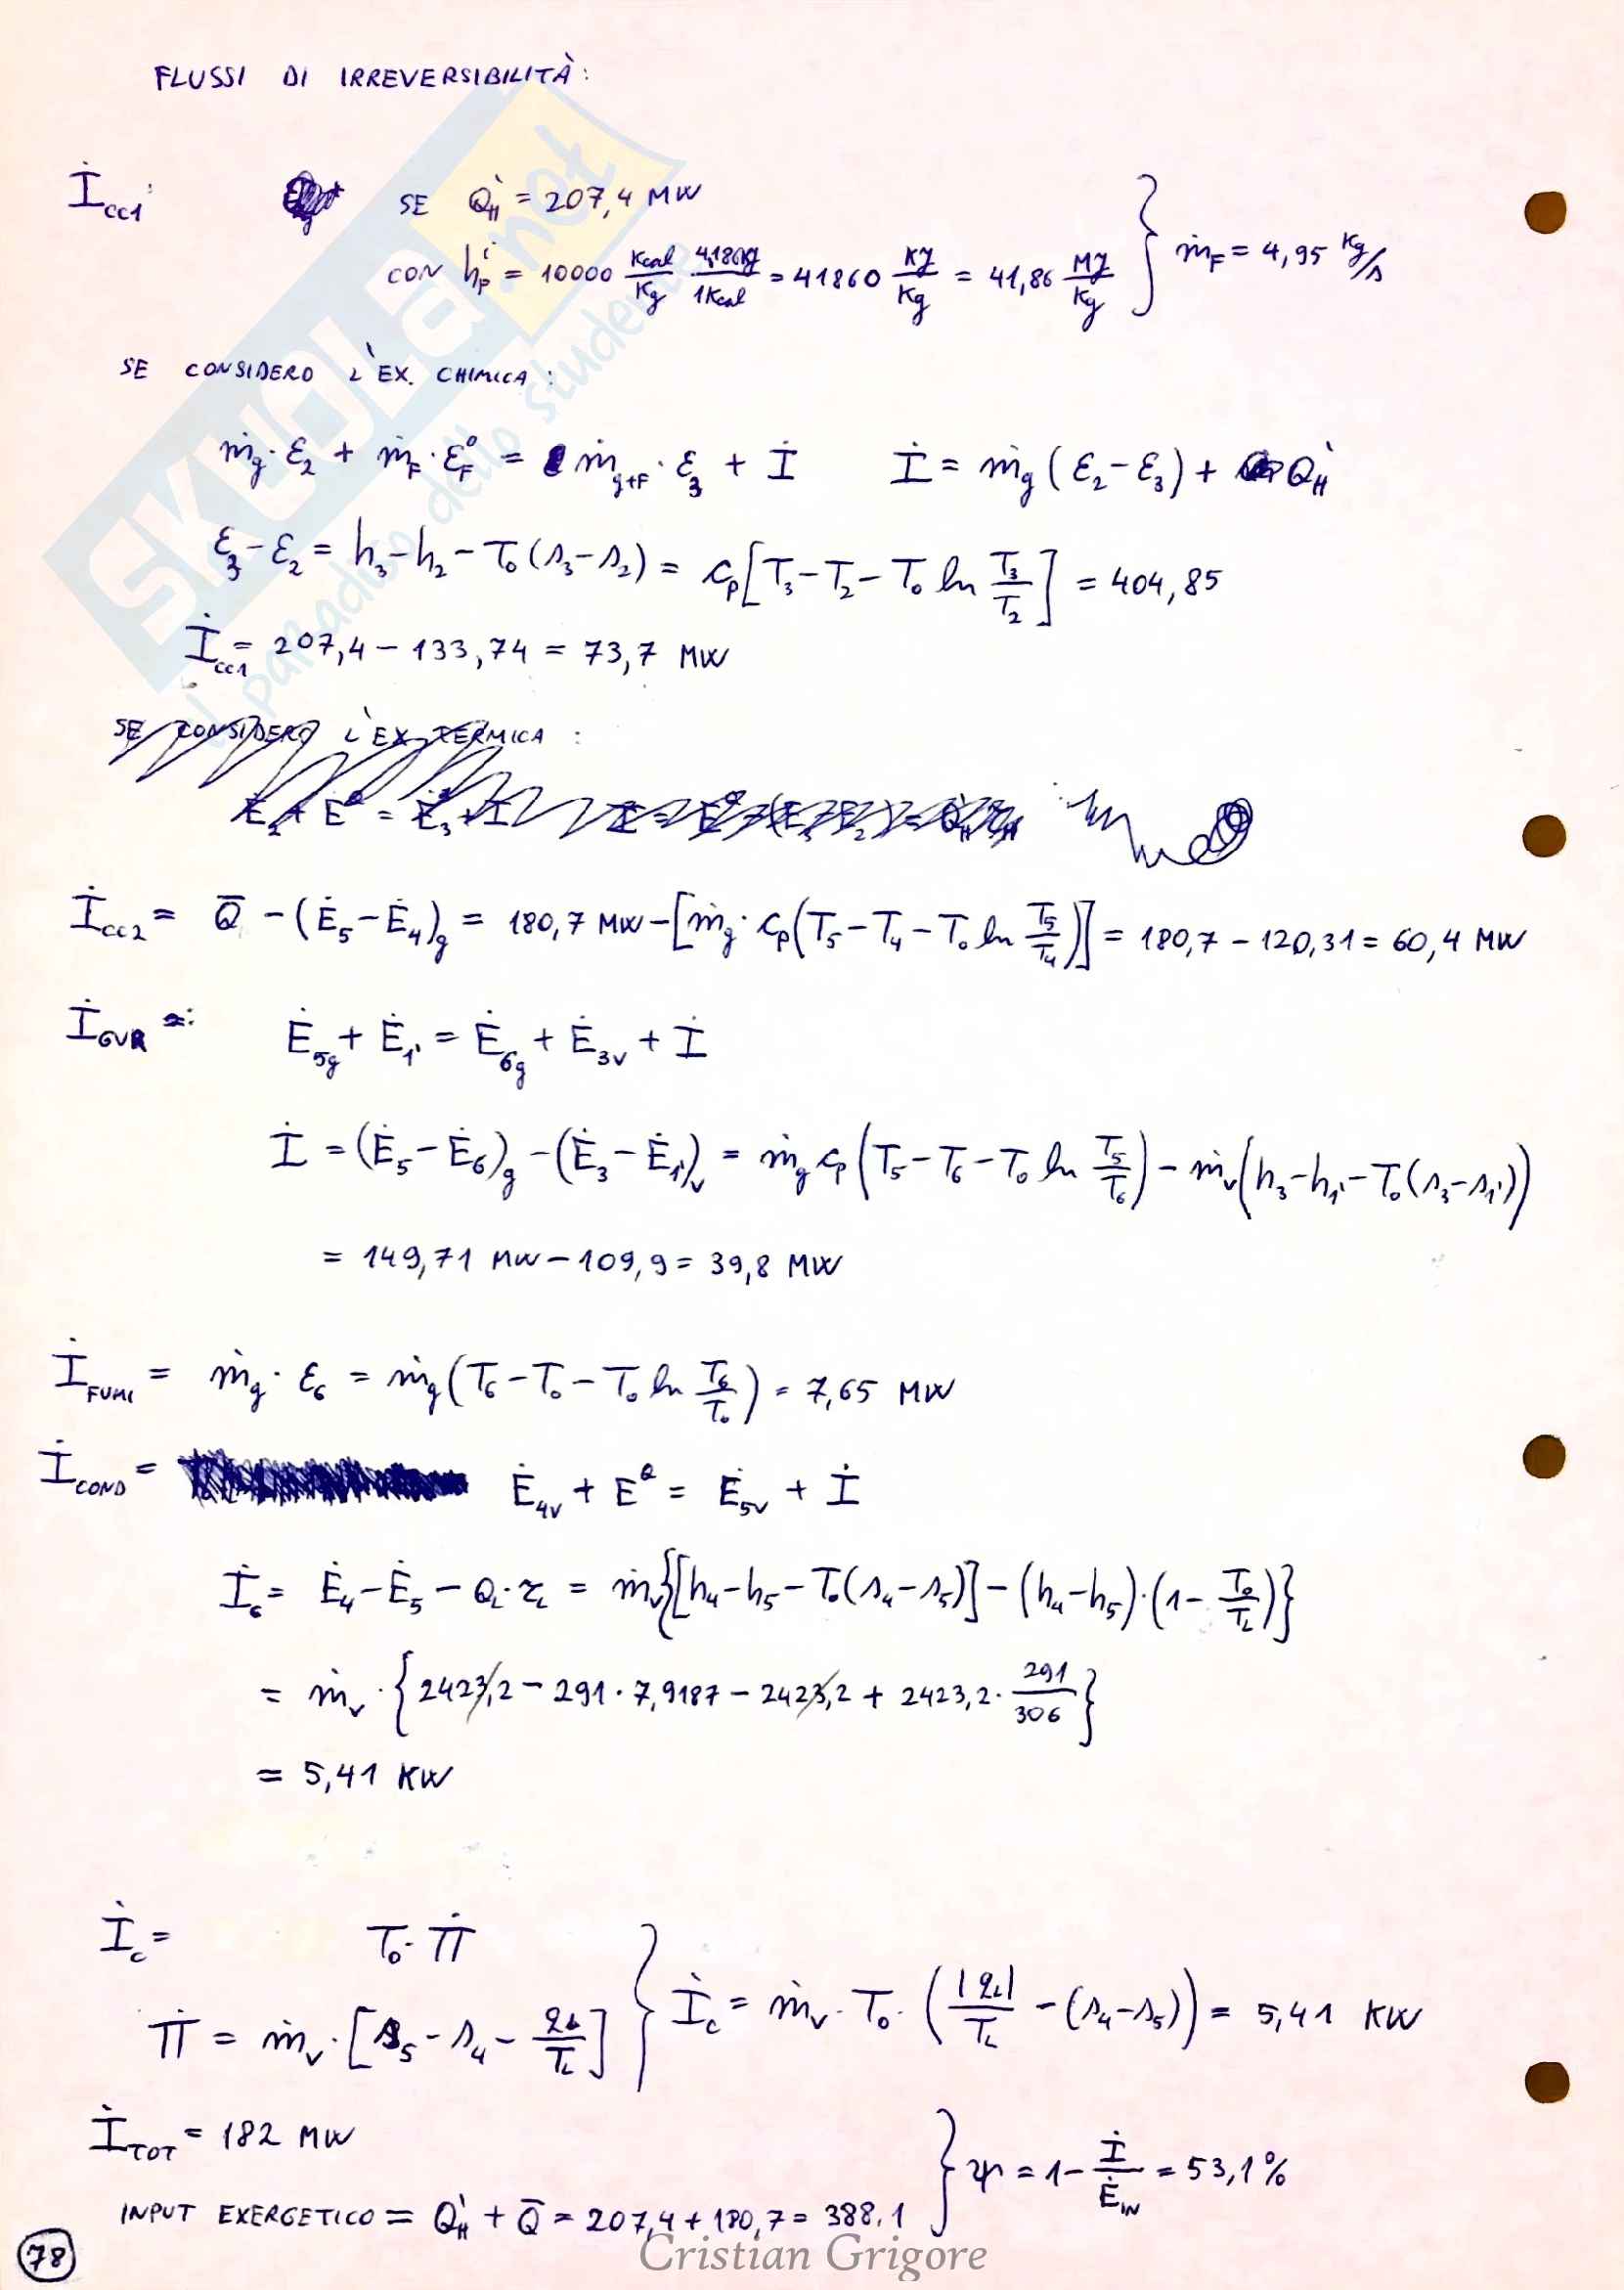 FLUSSI DI IRREVERSIBILITÀ:
İcc1: SE Q̇'H = 207,4 MW
CON hᵢp = 10000 Kcal/Kg 4,186Kj/1Kcal = 41860 KJ/Kg = 41,86 MJ/Kg } ṁF = 4,95 Kg/s
SE CONSIDERO L'EX. CHIMICA:
ṁg · ε2 + ṁF · ε°F = ṁg+F · ε3 + İ İ = ṁg (ε2 - ε3) + Q̇'H
ε3 - ε2 = h3 - h2 - T0 (s3 - s2) = cp [T3 - T2 - T0 ln T3/T2] = 404,85
İcc1 = 207,4 - 133,74 = 73,7 MW
SE CONSIDERO L'EX TERMICA:
İcc2 = Q̄ - (Ė5 - Ė4)g = 180,7 MW - [ṁg · cp (T5 - T4 - T0 ln T5/T4)] = 180,7 - 120,31 = 60,4 MW
İGVR: Ė5g + Ė1' = Ė6g + Ė3v + İ
İ = (Ė5 - Ė6)g - (Ė3 - Ė1')v = ṁg cp (T5 - T6 - T0 ln T5/T6) - ṁv (h3 - h1' - T0 (s3 - s1'))
= 149,71 MW - 109,9 = 39,8 MW
İFUMI = ṁg · ε6 = ṁg (T6 - T0 - T0 ln T6/T0) = 7,65 MW
İCOND = Ė4v + E^Q = Ė5v + İ
İc = Ė4 - Ė5 - QL · τL = ṁv {[h4 - h5 - T0 (s4 - s5)] - (h4 - h5) · (1 - T0/TL)}
= ṁv · {2423,2 - 291 · 7,9187 - 2423,2 + 2423,2 · 291/306}
= 5,41 KW
İc = T0 · Π̇
Π̇ = ṁv · [s5 - s4 - qL/TL] } İc = ṁv · T0 · (|qL|/TL - (s4 - s5)) = 5,41 KW
İTOT = 182 MW
INPUT EXERGETICO = Q̇'H + Q̄ = 207,4 + 180,7 = 388,1 } ψ = 1 - İ/ĖIN = 53,1%
78
Cristian Grigore
SKUOLA.net
il paradiso dello studente